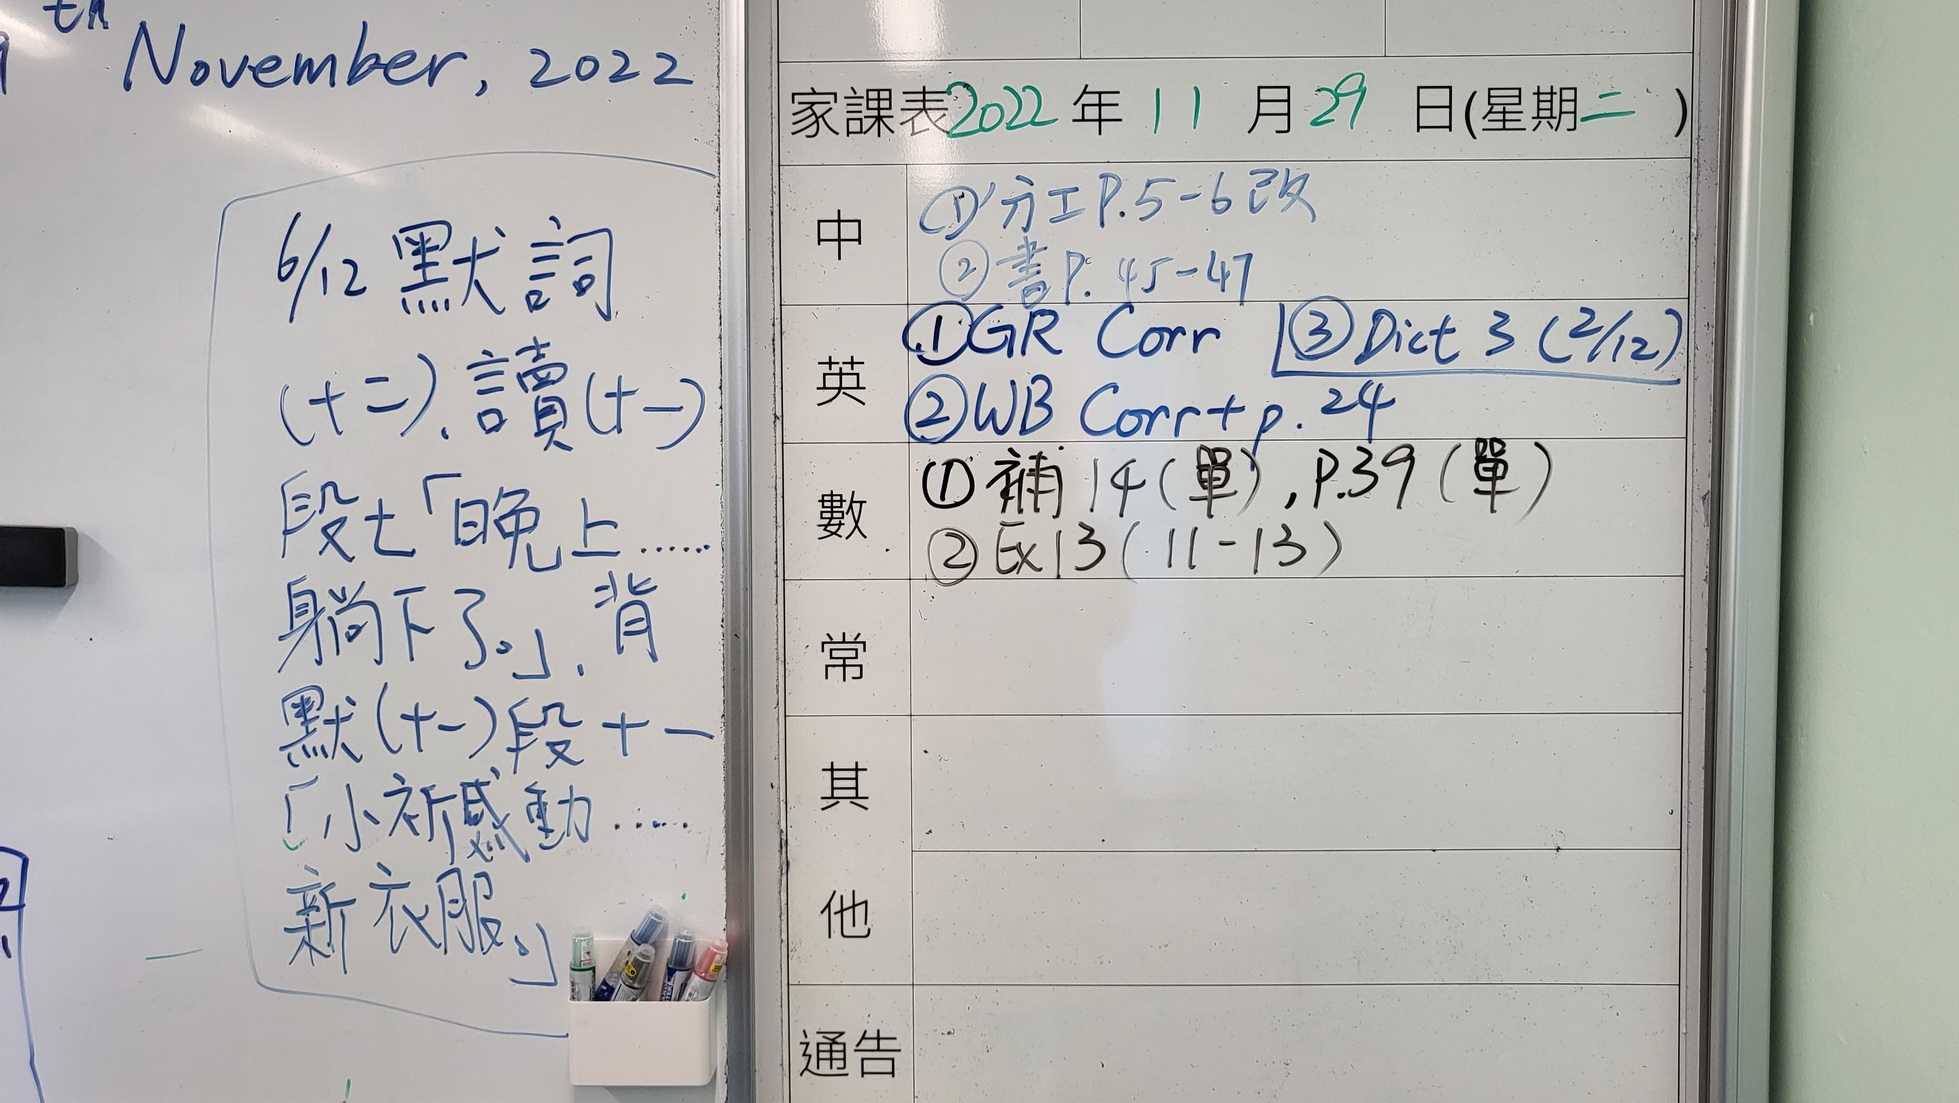 th November, 2022
6/12 默詞
(十二)、讀(十一)
段七「晚上……
躺下了。」、背
默(十一)段十一
「小祈感動……
新衣服。」
家課表2022年11月29日(星期二)
中
① 分工P.5-6改
② 書P.45-47
英
① GR Corr
③ Dict 3 (2/12)
② WB Corr + p.24
數
① 補14(單), P.39(單)
② Ex13(11-13)
常
其
他
通告